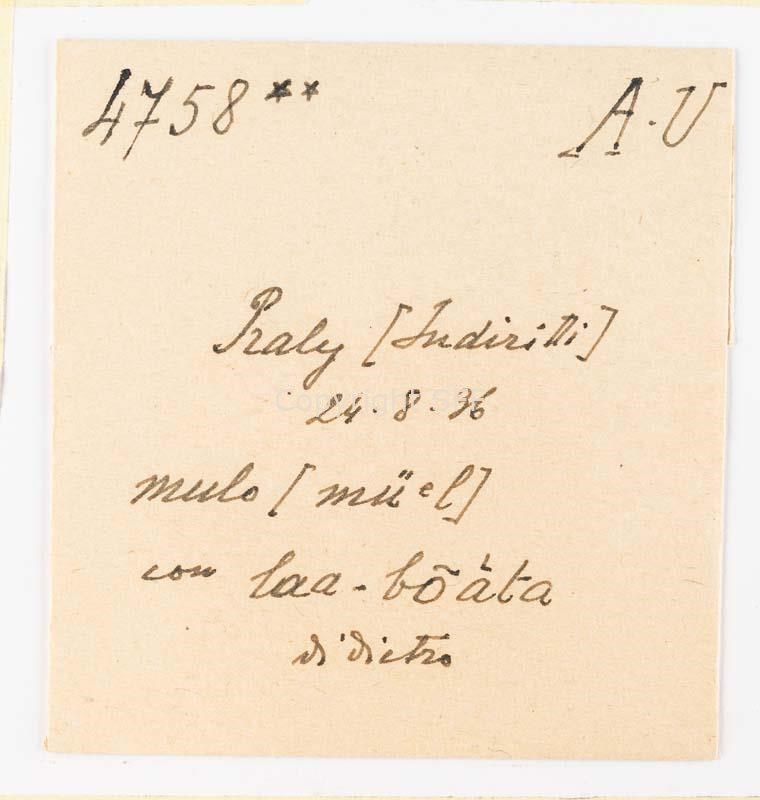 4758** A.V
Praly [Indiritti]
24.8.36
mulo [müᵉl]
con laa-bõáta
di dietro